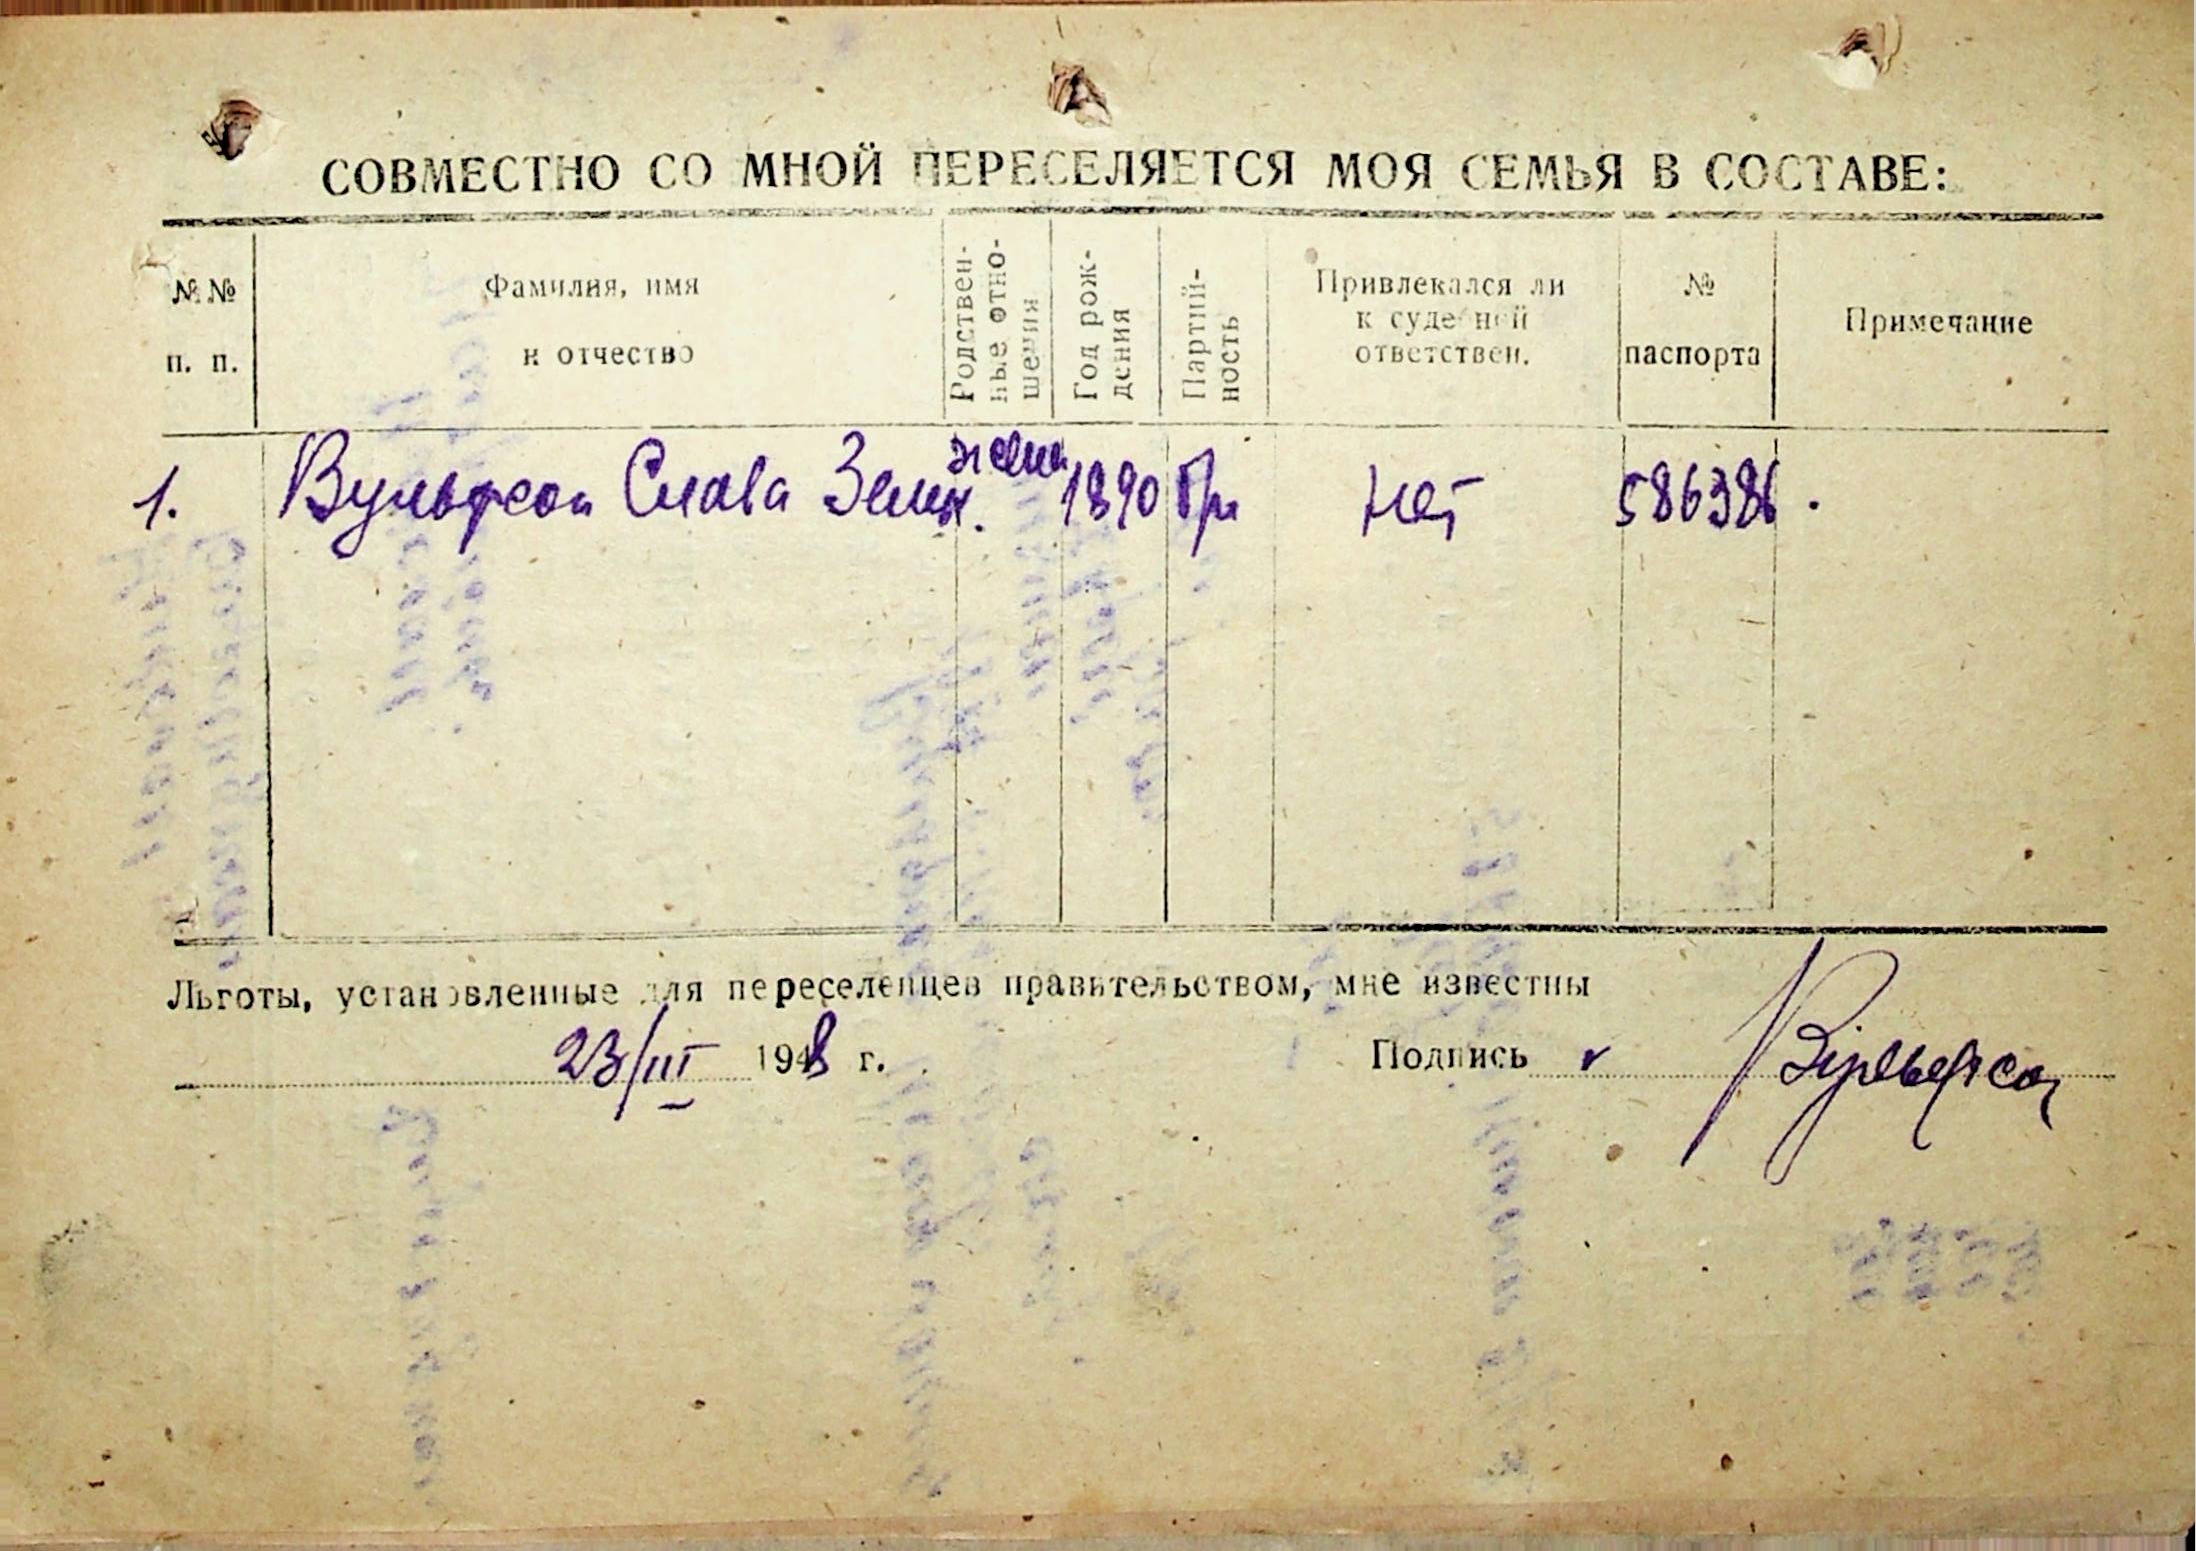 СОВМЕСТНО СО МНОЙ ПЕРЕСЕЛЯЕТСЯ МОЯ СЕМЬЯ В СОСТАВЕ:
№№ п. п.
Фамилия, имя и отчество
Родственные отношения
Год рождения
Партийность
Привлекался ли к судебной ответствен.
№ паспорта
Примечание
1. Вульфсон Слава Зелик. жена 1890 нет 586386.
Льготы, установленные для переселенцев правительством, мне известны
23/III 1948 г. Подпись Вульфсон